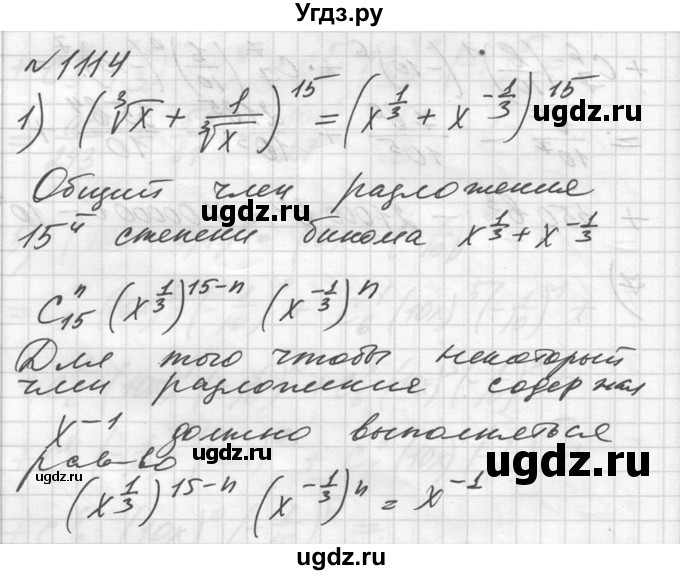 Угdz.ру
№1114
1) (∛x + 1/∛x)^15 = (x^(1/3) + x^(-1/3))^15
ugdz.ru
Общий член разложения
ugdz.ru
15ой степени бинома x^(1/3) + x^(-1/3)
C_15^n (x^(1/3))^(15-n) (x^(-1/3))^n
Для того чтобы некоторый
член разложения содержал
x^-1 должно выполняться
ugdz.ru
рав-во
ugdz.ru
ugdz.ru
(x^(1/3))^(15-n) (x^(-1/3))^n = x^-1
ugdz.ru